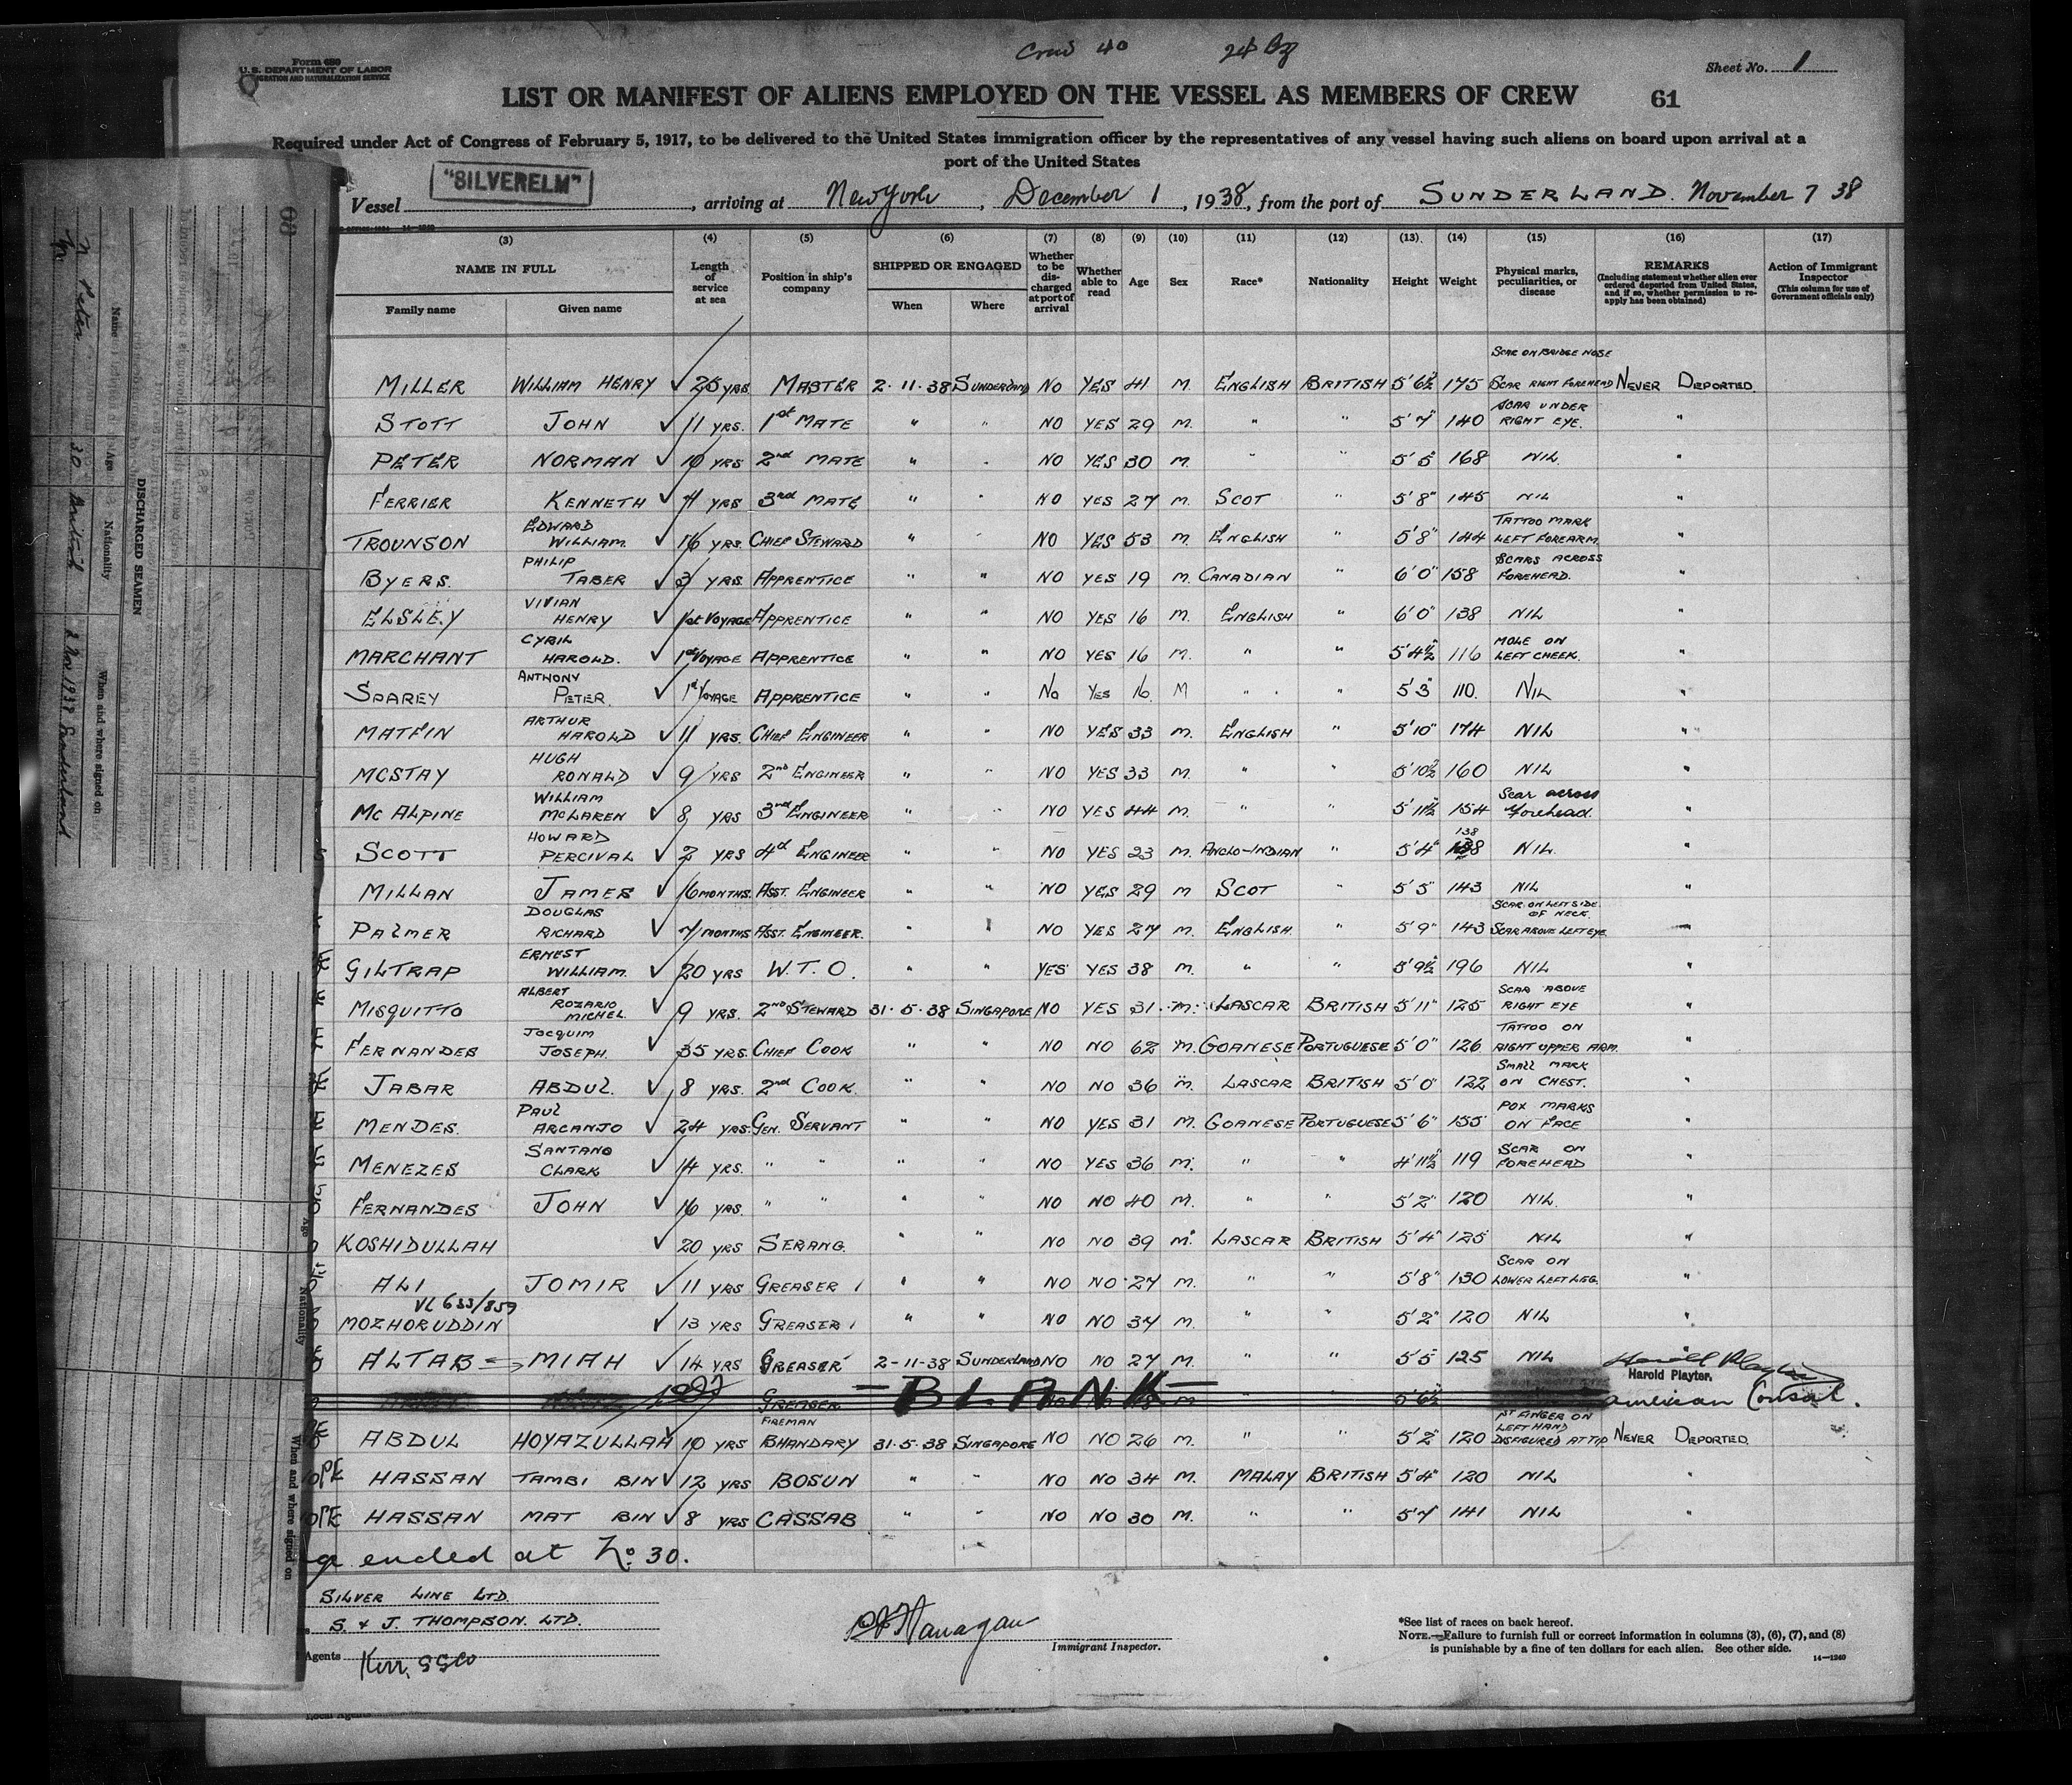 Crew 40
Form 680
U.S. DEPARTMENT OF LABOR
IMMIGRATION AND NATURALIZATION SERVICE
Sheet No. 1
LIST OR MANIFEST OF ALIENS EMPLOYED ON THE VESSEL AS MEMBERS OF CREW 61
Required under Act of Congress of February 5, 1917, to be delivered to the United States immigration officer by the representatives of any vessel having such aliens on board upon arrival at a
port of the United States
Vessel "SILVERELM", arriving at New York, December 1, 1938, from the port of SUNDERLAND. November 7 38
(3) (4) (5) (6) (7) (8) (9) (10) (11) (12) (13) (14) (15) (16) (17)
NAME IN FULL Family name Given name
Length of service at sea
Position in ship's company
SHIPPED OR ENGAGED When Where
Whether to be discharged at port of arrival
Whether able to read
Age Sex Race* Nationality Height Weight
Physical marks, peculiarities, or disease
REMARKS (Including statement whether alien ever ordered deported from United States, and if so, whether permission to reapply has been obtained)
Action of Immigrant Inspector (This column for use of Government officials only)
SCAR ON BRIDGE NOSE
MILLER WILLIAM HENRY ✓ 25 YRS MASTER 2-11-38 SUNDERLAND NO YES 41 M. ENGLISH BRITISH 5'6½" 175 SCAR RIGHT FOREHEAD NEVER DEPORTED
STOTT JOHN ✓ 11 YRS. 1st MATE " " NO YES 29 M. " " 5'7" 140 SCAR UNDER RIGHT EYE. "
PETER NORMAN ✓ 10 YRS 2nd MATE " " NO YES 30 M. " " 5'5" 168 NIL "
FERRIER KENNETH ✓ 4 YRS 3rd MATE " " NO YES 27 M. SCOT " 5'8" 145 NIL "
TROUNSON EDWARD WILLIAM. ✓ 16 YRS. CHIEF STEWARD " " NO YES 53 M. ENGLISH " 5'8" 144 TATTOO MARK LEFT FOREARM. "
BYERS. PHILIP TABER ✓ 3 YRS. APPRENTICE " " NO YES 19 M. CANADIAN " 6'0" 158 SCARS ACROSS FOREHEAD. "
ELSLEY VIVIAN HENRY ✓ 1st VOYAGE APPRENTICE " " NO YES 16 M. ENGLISH " 6'0" 138 NIL "
MARCHANT CYRIL HAROLD. ✓ 1st VOYAGE APPRENTICE " " NO YES 16 M. " " 5'4½" 116 MOLE ON LEFT CHEEK. "
SPAREY ANTHONY PETER. ✓ 1st VOYAGE APPRENTICE " " No YES 16 M " " 5'3" 110. NIL "
MATFIN ARTHUR HAROLD ✓ 11 YRS. CHIEF ENGINEER " " NO YES 33 M. ENGLISH " 5'10" 174 NIL "
MCSTAY HUGH RONALD ✓ 9 YRS 2nd ENGINEER " " NO YES 33 M. " " 5'10½" 160 NIL "
MC ALPINE WILLIAM MCLAREN ✓ 8 YRS 3rd ENGINEER " " NO YES 44 M. " " 5'11½" 154 Scar across Forehead. "
SCOTT HOWARD PERCIVAL ✓ 2 YRS 4th ENGINEER " " NO YES 23 M. ANGLO-INDIAN " 5'4" 138 NIL. "
MILLAN JAMES ✓ 16 MONTHS. ASST. ENGINEER " " NO YES 29 M SCOT " 5'5" 143 NIL "
PALMER DOUGLAS RICHARD ✓ 7 MONTHS ASST. ENGINEER. " " NO YES 27 M. ENGLISH. " 5'9" 143 SCAR ON LEFT SIDE OF NECK SCAR ABOVE LEFT EYE "
GILTRAP ERNEST WILLIAM. ✓ 20 YRS W.T.O. " " YES YES 38 M. " " 5'9½" 196 NIL "
MISQUITTO ALBERT ROZARIO MICHEL. ✓ 9 YRS. 2ND STEWARD 31-5-38 SINGAPORE NO YES 31 M. LASCAR BRITISH 5'11" 125 SCAR ABOVE RIGHT EYE "
FERNANDES JOCQUIM JOSEPH. ✓ 35 YRS. CHIEF COOK " " NO NO 62 M. GOANESE PORTUGUESE 5'0" 126 TATTOO ON RIGHT UPPER ARM. "
JABAR ABDUL. ✓ 8 YRS. 2nd COOK. " " NO NO 36 M. LASCAR BRITISH 5'0" 122 SMALL MARK ON CHEST. "
MENDES. PAUL ARCANJO ✓ 24 YRS. GEN. SERVANT " " NO YES 31 M. GOANESE PORTUGUESE 5'6" 155 POX MARKS ON FACE "
MENEZES SANTANO CLARK ✓ 14 YRS. " " " " NO YES 36 M. " " 4'11½" 119 SCAR ON FOREHEAD "
FERNANDES JOHN ✓ 16 YRS. " " " " NO NO 40 M. " " 5'2" 120 NIL. "
KOSHIDULLAH ✓ 20 YRS SERANG. " " NO NO 39 M. LASCAR BRITISH 5'4" 125 NIL "
ALI JOMIR ✓ 11 YRS GREASER " " NO NO 27 M. " " 5'8" 130 SCAR ON LOWER LEFT LEG. "
VL 633/859
MOZHORUDDIN ✓ 13 YRS GREASER " " NO NO 34 M. " " 5'2" 120 NIL "
ALTAB MIAH ✓ 14 YRS GREASER 2-11-38 SUNDERLAND NO NO 27 M. " " 5'5" 125 NIL
Harold Playter,
GREASER BLANK American Consul.
ABDUL HOYAZULLAH ✓ 10 YRS FIREMAN BHANDARY 31-5-38 SINGAPORE NO NO 26 M. " " 5'2" 120 1ST FINGER ON LEFT HAND DISFIGURED AT TIP NEVER DEPORTED.
HASSAN TAMBI BIN ✓ 12 YRS BOSUN " " NO NO 34 M. MALAY BRITISH 5'4" 120 NIL "
HASSAN MAT BIN ✓ 8 YRS CASSAB " " NO NO 30 M. " " 5'7" 141 NIL "
ended at No. 30.
SILVER LINE LTD.
S. & J. THOMPSON. LTD.
Agents Kerr, SS Co
Immigrant Inspector.
*See list of races on back hereof.
NOTE.—Failure to furnish full or correct information in columns (3), (6), (7), and (8)
is punishable by a fine of ten dollars for each alien. See other side.
14—1240
DISCHARGED SEAMEN
Name Age Nationality When and where signed on
N Peter 30 British 2 Nov 1938 Sunderland
Age Nationality When and where signed on